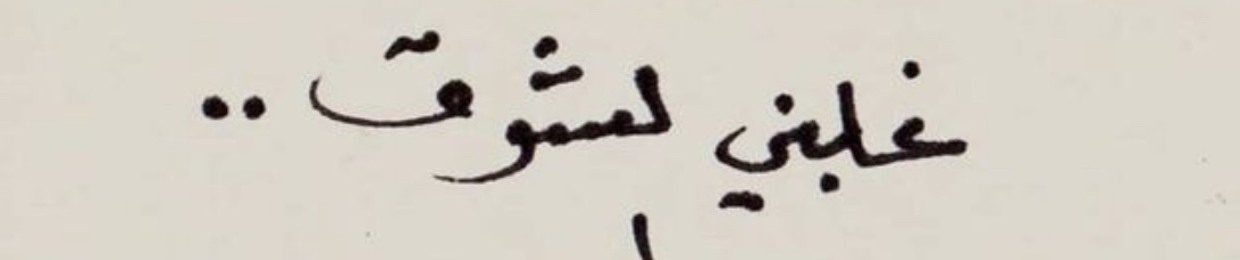 غلبني لشوق ..